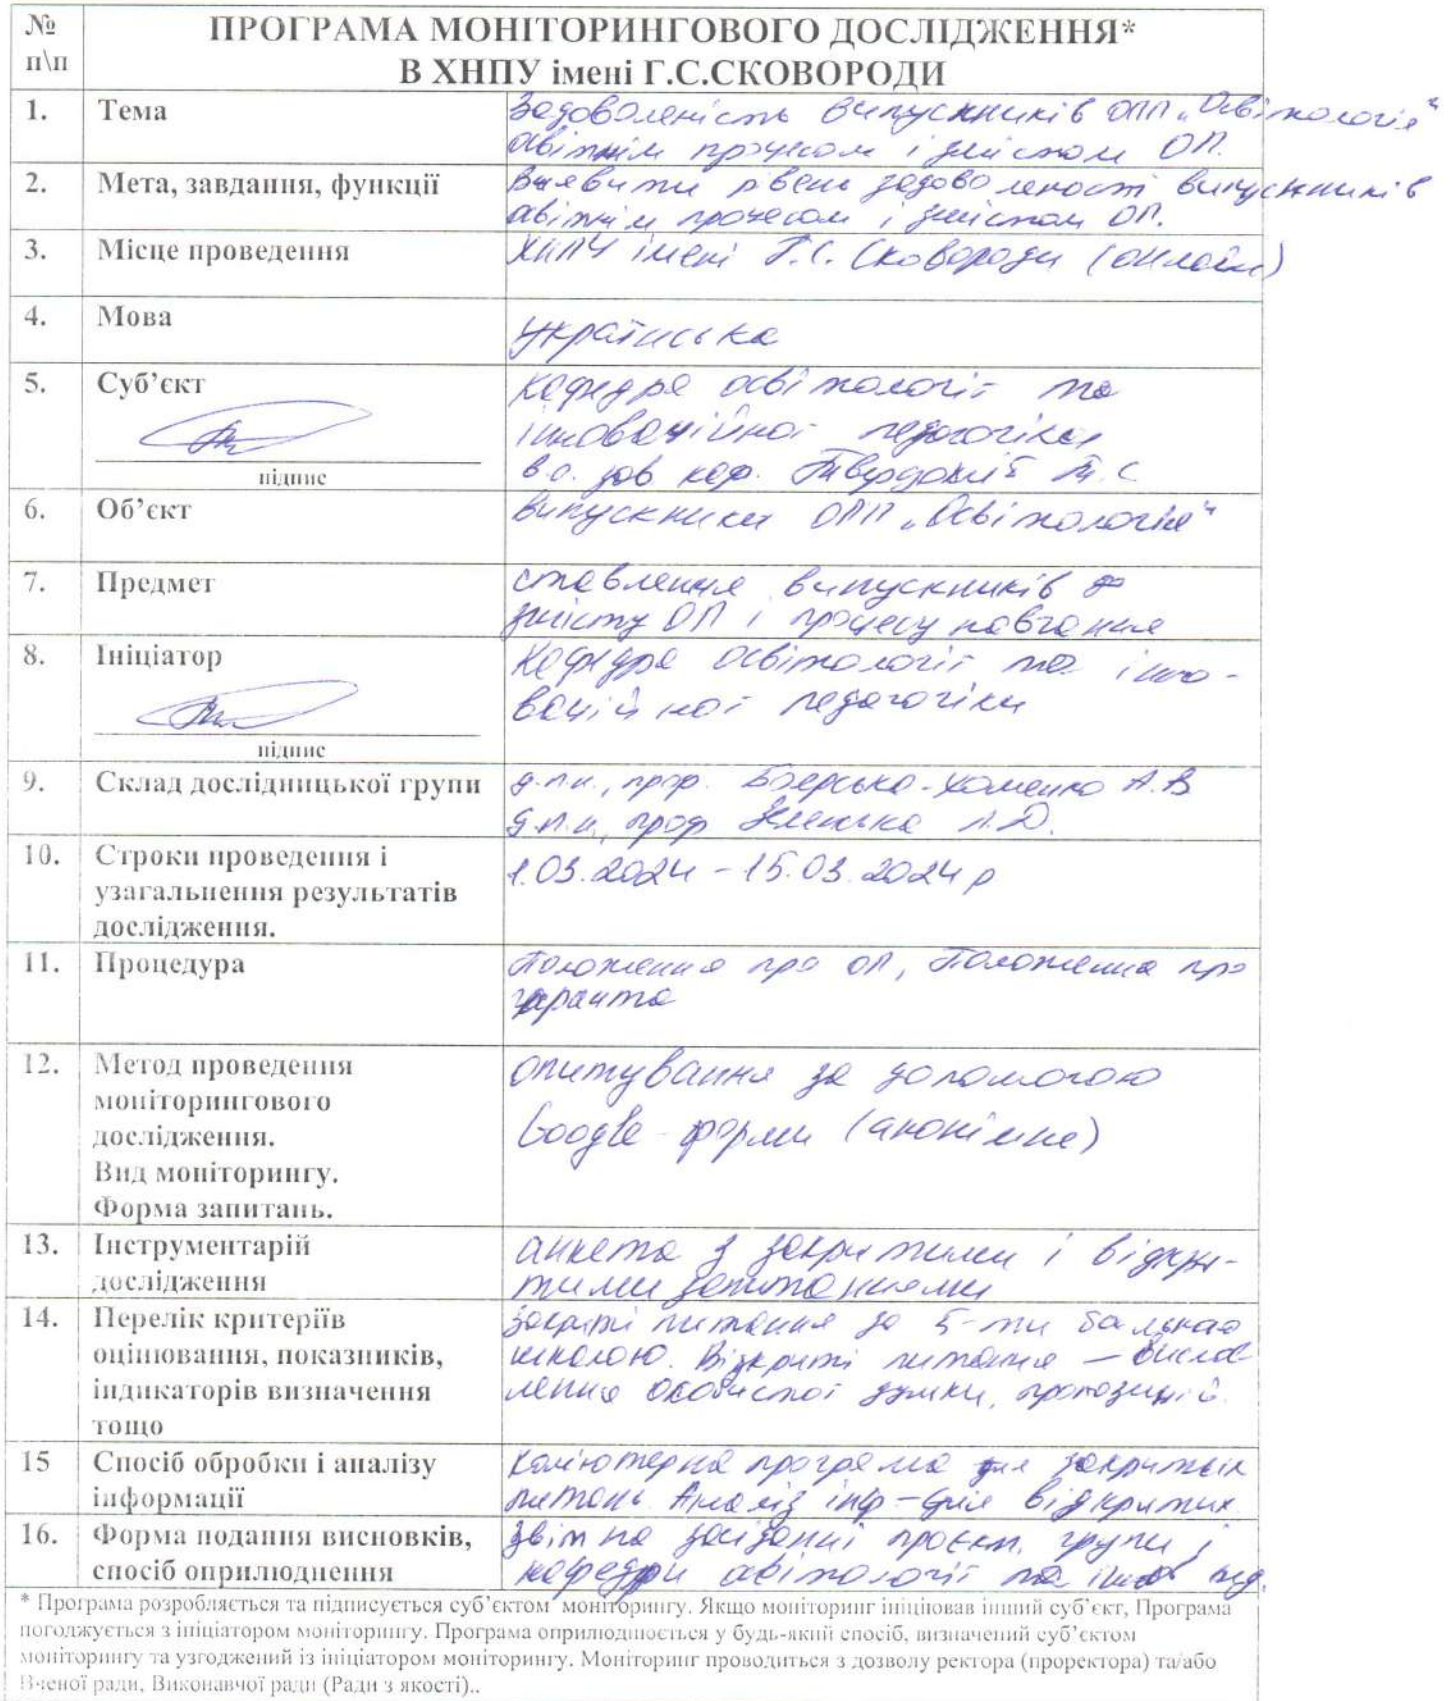 № п\п
ПРОГРАМА МОНІТОРИНГОВОГО ДОСЛІДЖЕННЯ*
В ХНПУ імені Г.С.СКОВОРОДИ
1. Тема
Задоволеність випускників ОПП „Освітологія"
освітнім процесом і змістом ОП.
2. Мета, завдання, функції
Виявити рівень задоволеності випускників
освітнім процесом і змістом ОП.
3. Місце проведення
ХНПУ імені Г.С. Сковороди (онлайн)
4. Мова
українська
5. Суб'єкт
підпис
кафедра освітології та
інноваційної педагогіки
в.о. зав каф. Твердохліб Т.С
6. Об'єкт
випускники ОПП „Освітологія"
7. Предмет
ставлення випускників до
змісту ОП і процесу навчання
8. Ініціатор
підпис
Кафедра освітології та інно-
ваційної педагогіки
9. Склад дослідницької групи
д.п.н., проф. Боярська-Хоменко А.В
д.п.н., проф Зеленська Л.Д.
10. Строки проведення і
узагальнення результатів
дослідження.
1.03.2024 – 15.03.2024 р
11. Процедура
Положення про ОП, Положення про
гаранта
12. Метод проведення
моніторингового
дослідження.
Вид моніторингу.
Форма запитань.
опитування за допомогою
Google-форми (анонімне)
13. Інструментарій
дослідження
анкета з закритими і відкри-
тими запитаннями
14. Перелік критеріїв
оцінювання, показників,
індикаторів визначення
тощо
закриті питання за 5-ти бальною
школою. Відкриті питання – вислов-
лення особистої думки, пропозицій.
15 Спосіб обробки і аналізу
інформації
комп'ютерна програма для закритих
питань. Аналіз інф – для відкритих.
16. Форма подання висновків,
спосіб оприлюднення
звіт на засіданні проєкт. групи і
кафедри освітології та іннов пед.
* Програма розробляється та підписується суб'єктом моніторингу. Якщо моніторинг ініціював інший суб'єкт, Програма
погоджується з ініціатором моніторингу. Програма оприлюднюється у будь-який спосіб, визначений суб'єктом
моніторингу та узгоджений із ініціатором моніторингу. Моніторинг проводиться з дозволу ректора (проректора) та/або
Вченої ради, Виконавчої ради (Ради з якості)..